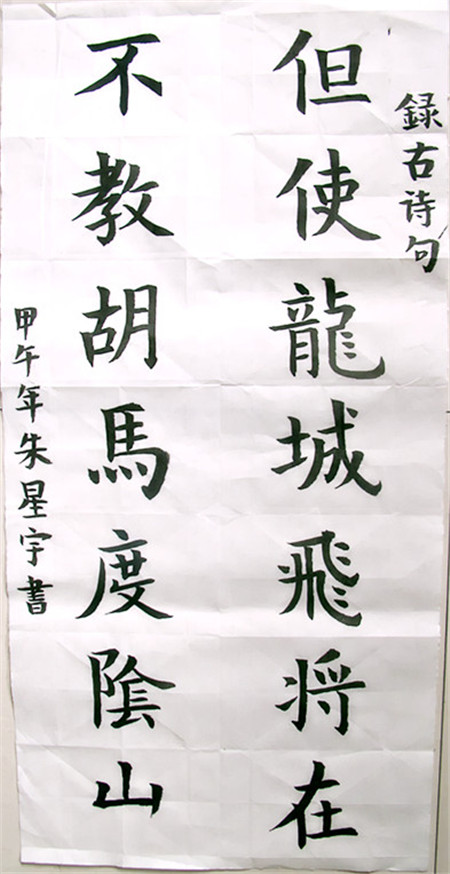 録古诗句
但使龍城飛将在
不教胡馬度陰山
甲午年朱星宇書